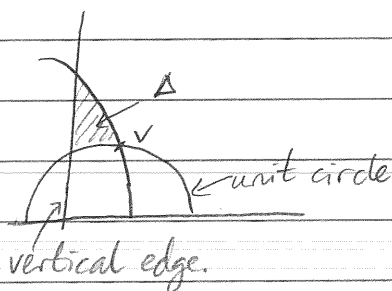 Δ
V
unit circle
vertical edge.